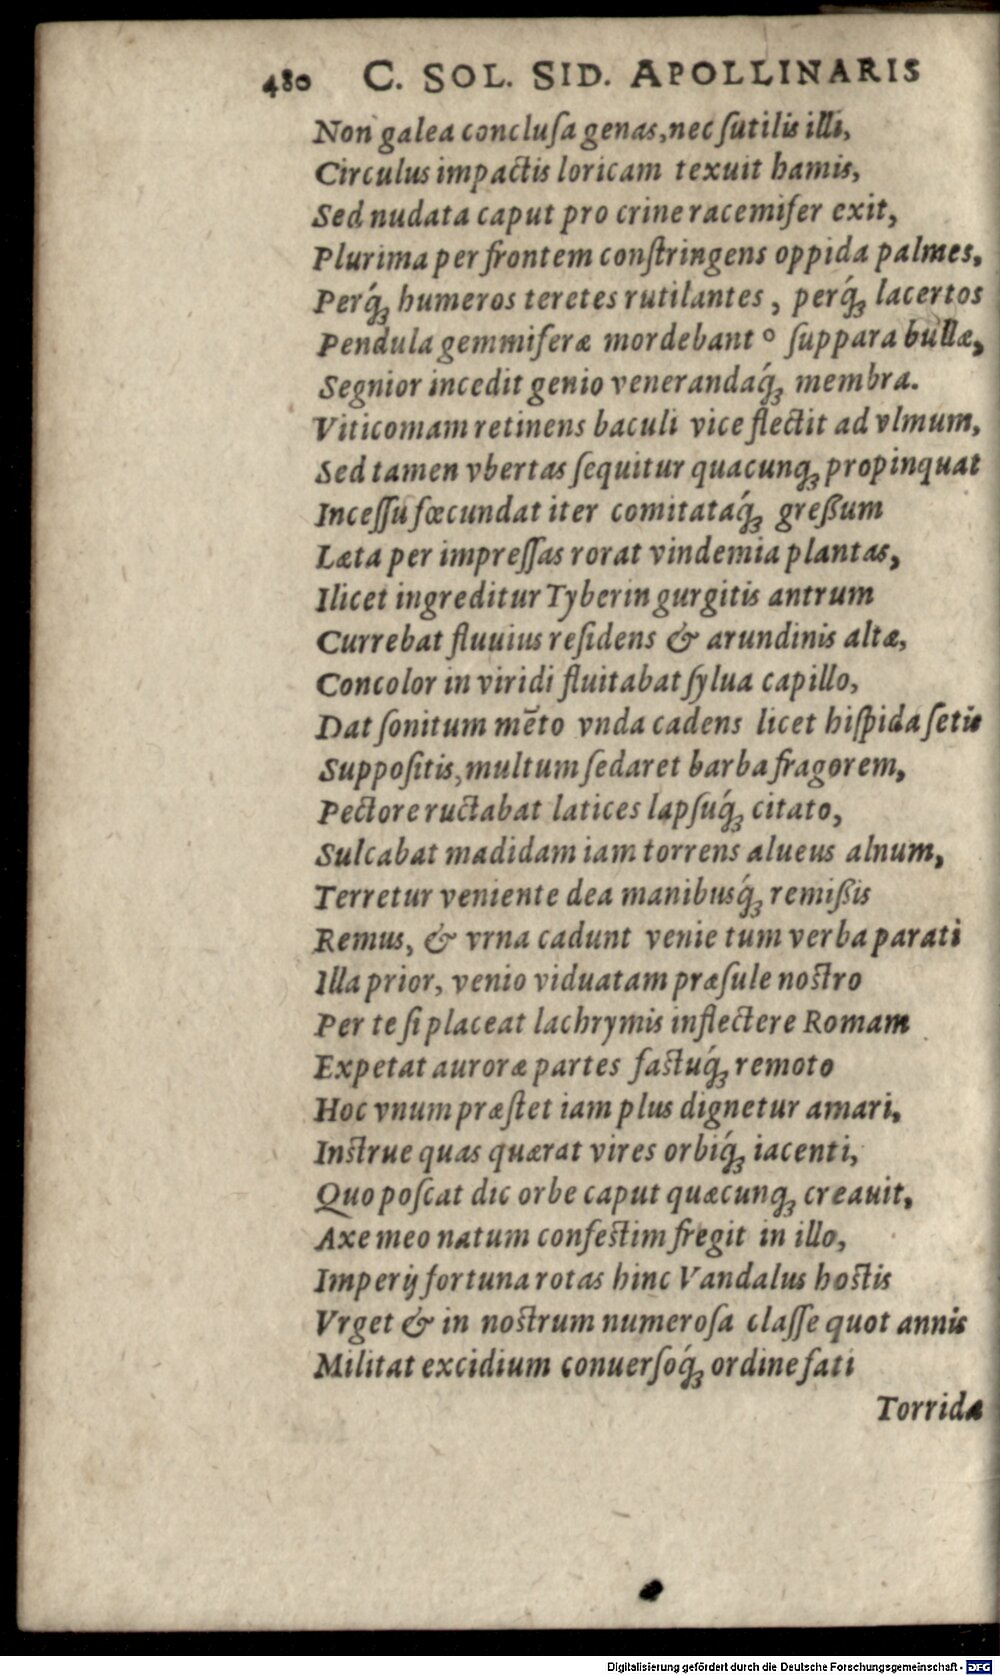 480 C. SOL. SID. APOLLINARIS
Non galea concluſa genas, nec ſutilis illi,
Circulus impactis loricam texuit hamis,
Sed nudata caput pro crine racemifer exit,
Plurima per frontem conſtringens oppida palmes,
Perq́ꝫ humeros teretes rutilantes, perq́ꝫ lacertos
Pendula gemmiferæ mordebant ° ſuppara bullæ,
Segnior incedit genio venerandaq́ꝫ membra.
Viticomam retinens baculi vice flectit ad vlmum,
Sed tamen vbertas ſequitur quacunqꝫ propinquat
Inceſſu fœcundat iter comitataq́ꝫ greßum
Læta per impreſſas rorat vindemia plantas,
Ilicet ingreditur Tyberin gurgitis antrum
Currebat fluuius reſidens & arundinis altæ,
Concolor in viridi fluitabat ſylua capillo,
Dat ſonitum mēto vnda cadens licet hiſpida ſetis
Suppoſitis, multum ſedaret barba fragorem,
Pectore ructabat latices lapſuq́ꝫ citato,
Sulcabat madidam iam torrens alueus alnum,
Terretur veniente dea manibusq́ꝫ remißis
Remus, & vrna cadunt venie tum verba parati
Illa prior, venio viduatam præſule noſtro
Per te ſi placeat lachrymis inflectere Romam
Expetat auroræ partes faſtuq́ꝫ remoto
Hoc vnum præſtet iam plus dignetur amari,
Inſtrue quas quærat vires orbiq́ꝫ iacenti,
Quo poſcat dic orbe caput quæcunqꝫ creauit,
Axe meo natum confeſtim fregit in illo,
Imperij fortuna rotas hinc Vandalus hoſtis
Vrget & in noſtrum numeroſa claſſe quot annis
Militat excidium conuerſoq́ꝫ ordine fati
Torridæ
Digitalisierung gefördert durch die Deutsche Forschungsgemeinschaft - DFG